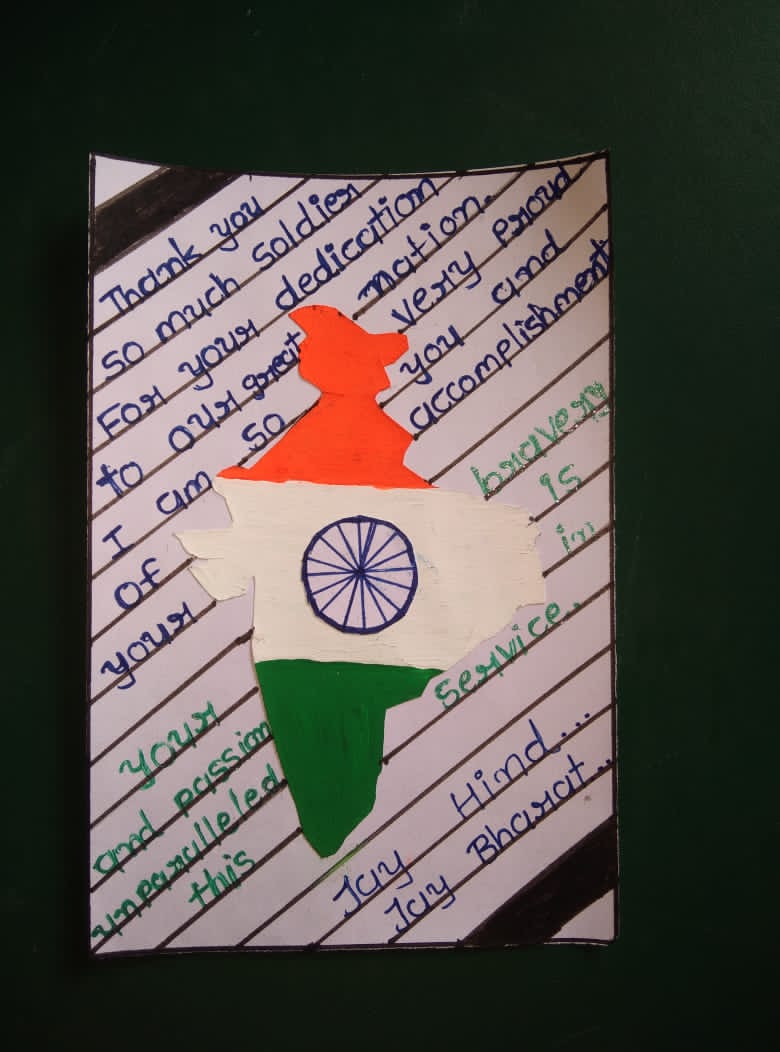 Thank you
so much soldier
For your dedication
to our great nation.
I am so very proud
of you and
your accomplishment
your bravery
and passion is
unparalleled in
this service..
Jay Hind...
Jay Bharat..